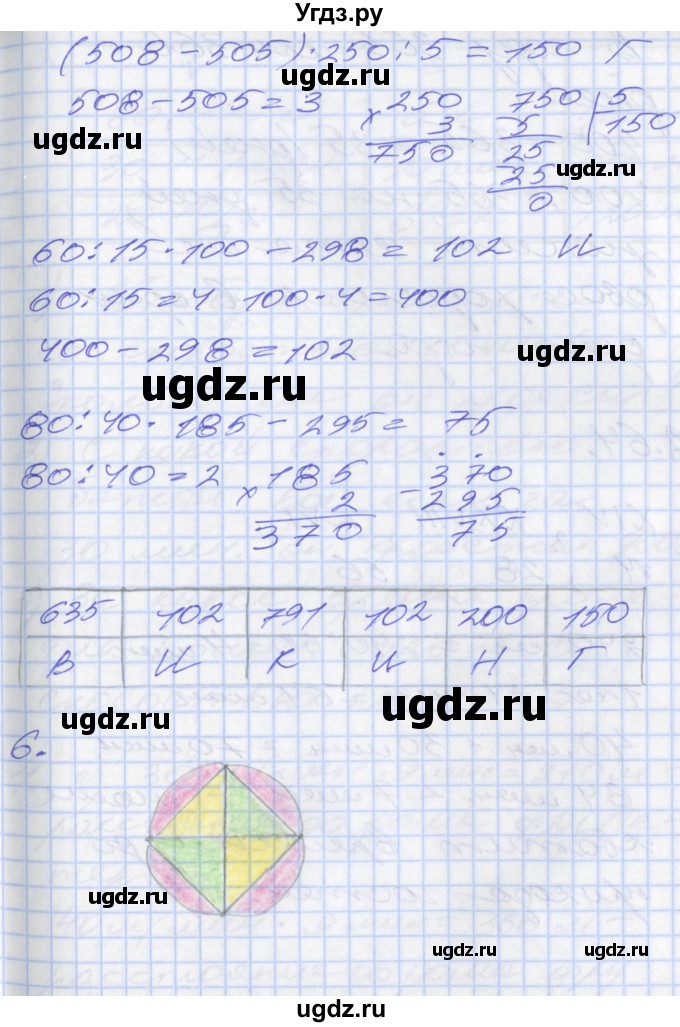 Угдз.ру
(508 - 505) · 250 : 5 = 150 Г
ugdz.ru
508 - 505 = 3 × 250 750 | 5
3 5 150
ugdz.ru
750 25
ugdz.ru
25
0
60 : 15 · 100 - 298 = 102 И
60 : 15 = 4 100 · 4 = 400
400 - 298 = 102
ugdz.ru
ugdz.ru
80 : 40 · 185 - 295 = 75
80 : 40 = 2 × 185 - 370
2 295
370 75
635 102 791 102 200 150
В И К И Н Г
ugdz.ru
ugdz.ru
6.
ugdz.ru
ugdz.ru
ugdz.ru
ugdz.ru